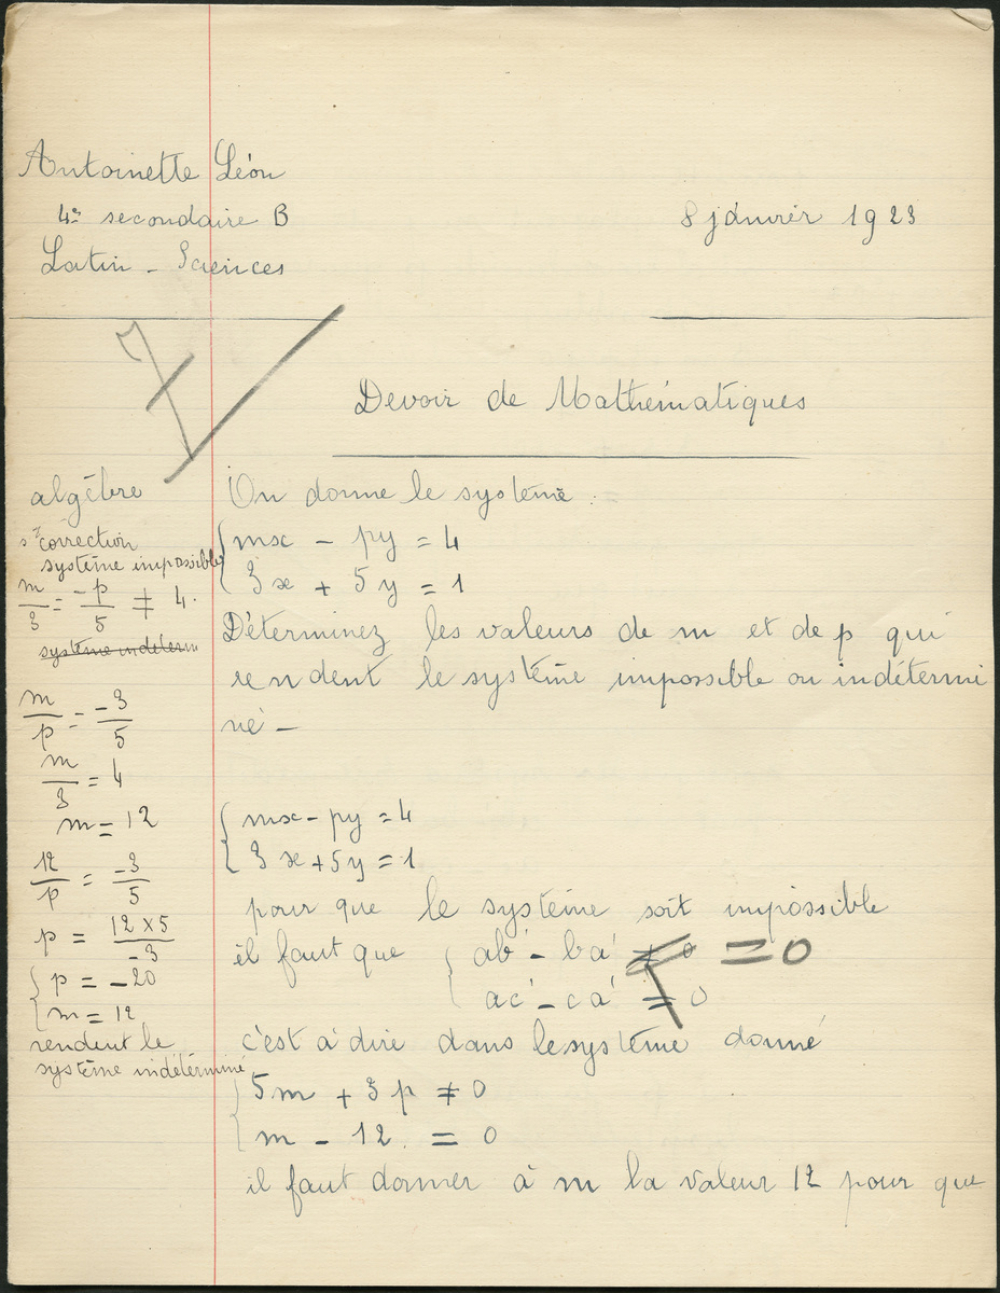 Antoinette Léon
4e secondaire B
8 janvier 1923
Latin - Sciences
7
Devoir de Mathématiques
algèbre
On donne le système :
correction
système impossible
m/3 = -p/5 ≠ 4.
système indéterm
m/p = -3/5
m/3 = 4
m = 12
12/p = -3/5
p = 12 x 5/-3
{ p = -20
{ m = 12
rendent le
système indéterminé
{ mx - py = 4
{ 3x + 5y = 1
Déterminez les valeurs de m et de p qui
rendent le système impossible ou indétermi
né -
{ mx - py = 4
{ 3x + 5y = 1
pour que le système soit impossible
il faut que { ab' - ba' ≠ 0 = 0
{ ac' - ca' = 0
c'est à dire dans le système donné
{ 5m + 3p ≠ 0
{ m - 12. = 0
il faut donner à m la valeur 12 pour que